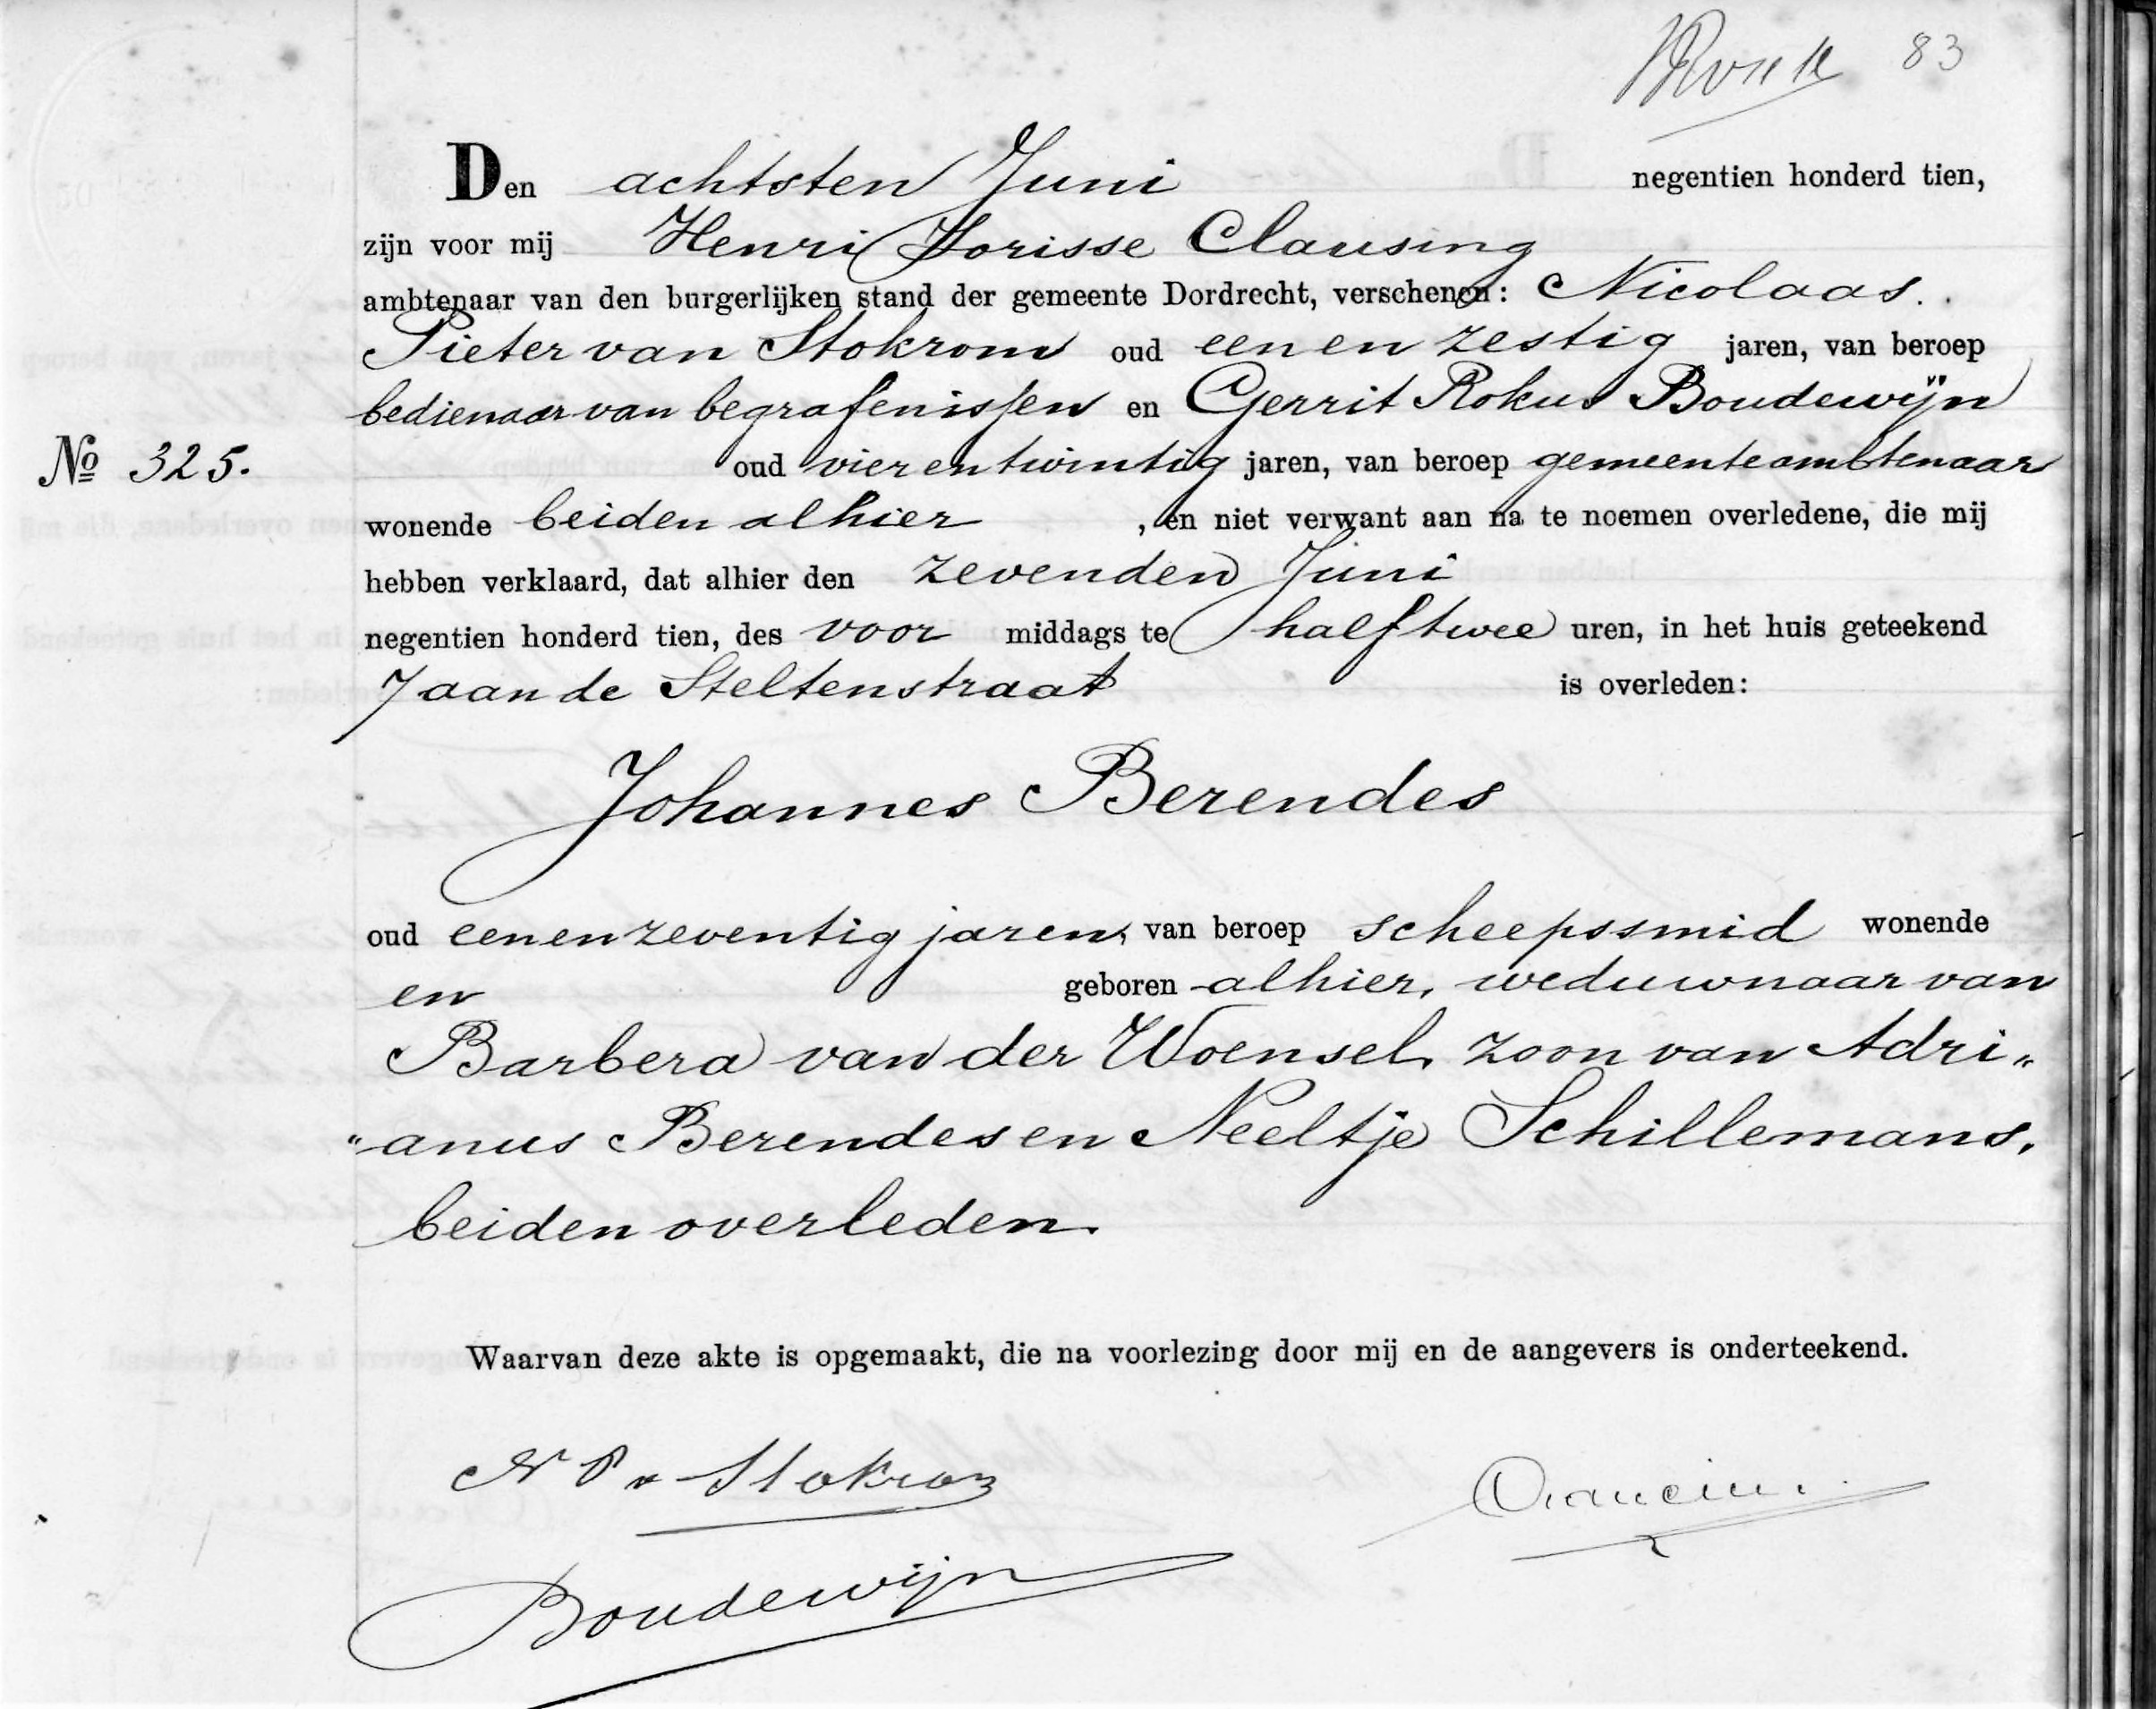 83
Den achtsten Juni negentien honderd tien,
zijn voor mij Henri Jorisse Clausing
ambtenaar van den burgerlijken stand der gemeente Dordrecht, verschenen: Nicolaas
Pieter van Stokrom oud een en zestig jaren, van beroep
bedienaar van begrafenissen en Gerrit Rokus Boudewijn
No 325.
oud vier en twintig jaren, van beroep gemeenteambtenaar
wonende beiden alhier, en niet verwant aan na te noemen overledene, die mij
hebben verklaard, dat alhier den zevenden Juni
negentien honderd tien, des voor middags te half twee uren, in het huis geteekend
7 aan de Steltenstraat is overleden:
Johannes Berendes
oud eenenzeventig jaren, van beroep scheepssmid wonende
en geboren alhier, weduwnaar van
Barbera van der Woensel, zoon van Adri„
„anus Berendes en Neeltje Schillemans,
beiden overleden.
Waarvan deze akte is opgemaakt, die na voorlezing door mij en de aangevers is onderteekend.
N P v Stokrom
Boudewijn